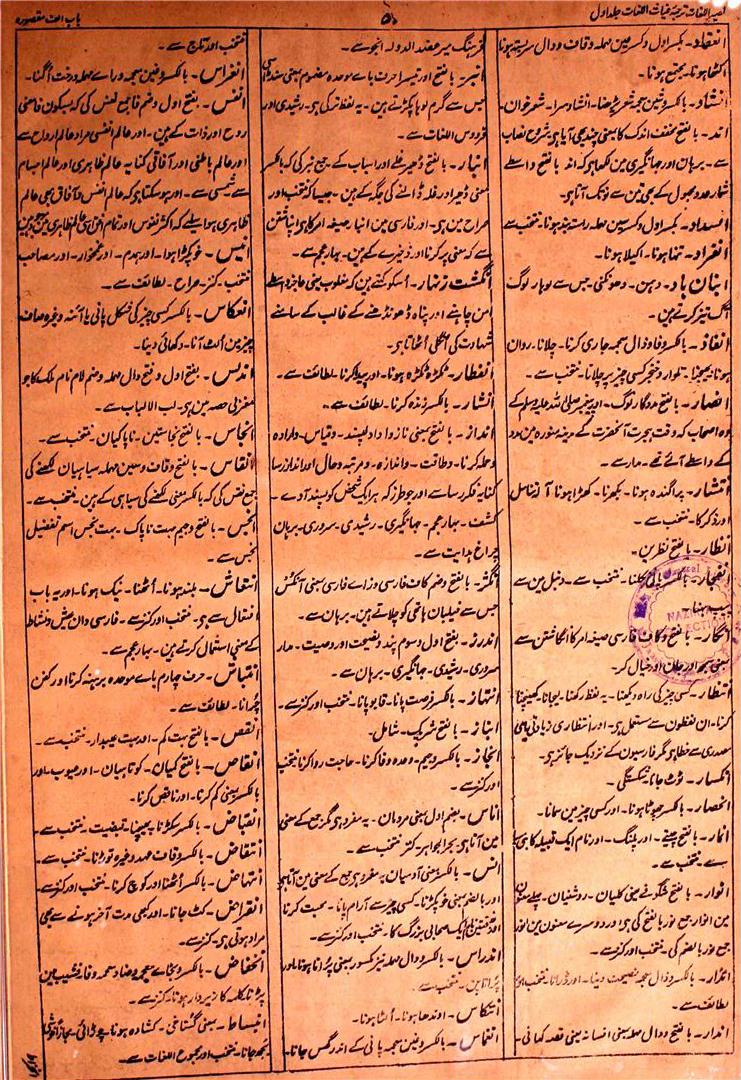 نصیر اللغات ترجمۂ غیاث اللغات جلد اول
۵۰
باب الف مقصورہ
انعقاد۔ بکسر اول وکسر عین مہملہ وقاف ودال سربستہ ہونا
اکٹھا ہونا۔ مجتمع ہونا۔
انشاد۔ بالکسر وشین معجمہ شعر پڑھنا۔ انشاد سرا۔ شعر خوان۔
اند۔ بالفتح مخفف اندک کا بمعنی چند بھی آیا ہے شروح نصاب
سے۔ برہان اور جہانگیری مین لکھا ہے کہ اند بالفتح واسطے
شمار عدد مجہول کے بھی تین سے نو تک آتا ہے۔
انسداد۔ بکسر اول وکسر سین مہملہ رستہ بند ہونا۔ منتخب سے
انفراد۔ تنہا ہونا۔ اکیلا ہونا۔
انبان باد۔ دہن۔ دھونکنی۔ جس سے لوہار لوگ
آگ تیز کرتے ہین۔
انفاذ۔ بالکسر وفا وذال معجمہ جاری کرنا۔ چلانا۔ روان
ہونا۔ بھیجنا۔ تلوار وخنجر کسی چیز پر چلانا۔ منتخب سے۔
انصار۔ بالفتح مددگار لوگ۔ اور پیغمبر صلی اللہ علیہ وسلم کے
وہ اصحاب کہ وقت ہجرت آنحضرت کے مدینہ منورہ مین مدد
کے واسطے آئے تھے۔ مدار سے۔
انتشار۔ پراگندہ ہونا۔ بکھرنا۔ کھڑا ہونا آلۂ تناسل
اور ذکر کا۔ منتخب سے۔
انظار۔ بالفتح نظرین۔
انفجار۔ بالکسر پانی نکلنا۔ منتخب سے۔ دنبل مین سے
پیپ بہنا۔
انگار۔ بالفتح وکاف فارسی صیغہ امر کا انگاشتن سے
بمعنی سمجھ اور جان اور خیال کر۔
انتظار۔ کسی چیز کی راہ دیکھنا۔ یہ لفظ رکھنا۔ لیجانا۔ کھینچنا
کرنا۔ ان لفظون سے مستعمل ہے۔ اور انتظاری زیادتی یای
مصدری سے خطا ہے مگر فارسیون کے نزدیک جائز ہے۔
انکسار۔ ٹوٹ جانا۔ شکستگی۔
انحصار۔ بالکسر چھوٹا ہونا۔ اور کسی چیز مین سمانا۔
انمار۔ بالفتح چیتے۔ اور پلنگ۔ اور نام ایک قبیلہ کا ہے
سے منتخب سے۔
انوار۔ بالفتح شگوفے یعنی کلیان۔ روشنیان۔ پہلے معنون
مین انوار جمع نور بالفتح کی ہے اور دوسرے معنون مین نور
جمع نور بالضم کی۔ منتخب اور کنز سے۔
انذار۔ بالکسر وذال معجمہ نصیحت دینا۔ اور ڈرانا منتخب اور
لطائف سے۔
اندار۔ بالفتح ودال مہملہ بمعنی افسانہ یعنی قصہ کہانی۔
فرہنگ میر عضد الدولہ انجو سے۔
انبر۔ بالفتح اور تیسرا حرف باے موحدہ مضموم بمعنی سنداسی
جس سے گرم لوہا پکڑتے ہین۔ یہ لفظ ترکی ہے۔ رشیدی اور
فردوس اللغات سے۔
انبار۔ بالفتح ڈھیر غلے اور اسباب کے جمع نبر کی کہ بالکسر
بمعنی ڈھیر اور غلہ ڈالنے کی جگہ کے ہین۔ جیسا کہ منتخب اور
صراح مین ہے۔ اور فارسی مین انبار صیغہ امر کا ہے انباشتن
سے کہ معنی پر کرنا اور ذخیرے کے ہین۔ بہار عجم سے۔
انگشت زنہار۔ اسکو کہتے ہین کہ مغلوب یعنی عاجز واسطے
امن چاہنے اور پناہ ڈھونڈھنے کے غالب کے سامنے
شہادت کی انگلی اٹھاتا ہے۔
انفطار۔ ٹکڑہ ٹکڑہ ہونا۔ اور پیدا کرنا۔ لطائف سے۔
انشار۔ بالکسر زندہ کرنا۔ لطائف سے۔
انداز۔ بالفتح بمعنی ناز وادا دلپسند۔ وقیاس۔ وارادہ
وحملہ کرنا۔ وطاقت۔ واندازہ۔ ومرتبہ وحال اور انداز رسا
کنایہ فکر رسا سے اور جو طرز کہ ہر ایک شخص کو پسند آوے۔
کشف۔ بہار عجم۔ جہانگیری۔ رشیدی۔ سروری۔ برہان
چراغ ہدایت سے۔
انگژ۔ بالفتح وضم کاف فارسی وزاے فارسی بمعنی آنکس
جس سے فیلبان ہاتھی کو چلاتے ہین۔ برہان سے۔
اندرز۔ بفتح اول وسوم پند ونصیحت اور وصیت۔ مدار
سروری۔ رشیدی۔ جہانگیری۔ برہان سے۔
انتہاز۔ بالکسر فرصت پانا۔ قابو پانا۔ منتخب اور کنز سے۔
انباز۔ بالفتح شریک۔ شامل۔
انجاز۔ بالکسر وجیم۔ وعدہ وفا کرنا۔ حاجت روا کرنا منتخب
اور کنز سے۔
اناس۔ بضم اول بمعنی مردمان۔ یہ مفرد ہے مگر جمع کے معنی
مین آتا ہے۔ بحر الجواہر۔ کنز۔ منتخب سے۔
انس۔ بالکسر بمعنی آدمیان یہ مفرد ہے جمع کے معنی مین آتا ہے
اور بالضم بمعنی خو پکڑنا۔ کسی چیز سے آرام پانا۔ محبت کرنا
اور بفتحتین نام ایک صحابی بزرگ کا۔ منتخب اور کنز سے۔
اندراس۔ بالکسر ودال مہملہ نیز کسور بمعنی پرانا ہونا۔ اور
پرانا پن۔ منتخب سے۔
انتکاس۔ اوندھا ہونا۔ الٹا ہونا۔
انغماس۔ بالکسر وغین معجمہ پانی کے اندر گھس جانا۔
منتخب اور تاج سے۔
انغراس۔ بالکسر وغین معجمہ وراے مہملہ درخت اگنا۔
انفس۔ بفتح اول وضم فا جمع نفس کی کہ بسکون فا بمعنی
روح اور ذات کے ہین۔ اور عالم انفسی مراد عالم ارواح سے
اور عالم باطنی اور آفاقی کنایہ عالم ظاہری اور عالم اجسام
سے شمسی سے۔ اور ہو سکتا ہے کہ عالم انفس وآفاق بھی عالم
ظاہری ہو اسلیے کہ اکثر نفوس اور تمام آفاق عالم ظاہری مین موجود ہین
انیس۔ خو پکڑا ہوا۔ اور ہمدم۔ اور غمخوار۔ اور مصاحب
منتخب۔ کنز۔ صراح۔ لطائف سے۔
انعکاس۔ بالکسر کسی چیز کی شکل پانی یا آئنہ وغیرہ صاف
چیز مین الٹ آنا۔ دکھائی دینا۔
اندلس۔ بفتح اول وفتح دال مہملہ وضم لام نام ملک کا جو
مغربی حصہ مین ہے۔ لب الالباب سے۔
انجاس۔ بالفتح نجاستین۔ ناپاکیان۔ منتخب سے۔
انقاس۔ بالفتح وقاف وسین مہملہ سیاہیان لکھنے کی
جمع نقس کی کہ بالکسر بمعنی لکھنے کی سیاہی کے ہین۔ منتخب سے۔
انجس۔ بالفتح وجیم بہت ناپاک۔ بہت نجس اسم تفضیل
نجس سے۔
انتعاش۔ بلند ہونا۔ اٹھنا۔ نیک ہونا۔ اور یہ باب
افتعال سے ہے۔ منتخب اور کنز سے۔ فارسی دان عیش ونشاط
کے معنی استعمال کرتے ہین۔ بہار عجم سے۔
انتباش۔ حرف چہارم باے موحدہ برہنہ کرنا اور کفن
چرانا۔ لطائف سے۔
انقص۔ بالفتح بہت کم۔ اور بہت عیبدار۔ منتخب سے۔
انقاص۔ بالفتح کمیان۔ کوتاہیان۔ اور عیوب۔ اور
بالکسر بمعنی کم کرنا۔ اور ناقص کرنا۔
انقباض۔ بالکسر سکڑنا بھیچنا۔ قبضیت۔ منتخب سے۔
انتقاض۔ بالکسر وقاف عہد وغیرہ توڑنا۔ منتخب سے۔
انتہاض۔ بالکسر اٹھنا اور کوچ کرنا۔ منتخب اور کنز سے۔
انقراض۔ کٹ جانا۔ اور کبھی مدت آخر ہونے سے بھی
مراد ہوتی ہے۔ کنز سے۔
انخفاض۔ بالکسر وخاے معجمہ وضاد معجمہ وفا۔ نشیب مین
پڑنا کلمہ کا زیر دار ہونا۔ کنز سے۔
انبساط۔ بمعنی گستاخی۔ کشادہ ہونا۔ چوڑائی۔ مجازاً خوشی
سمجھ جانا۔ منتخب اور مجموع اللغات سے۔